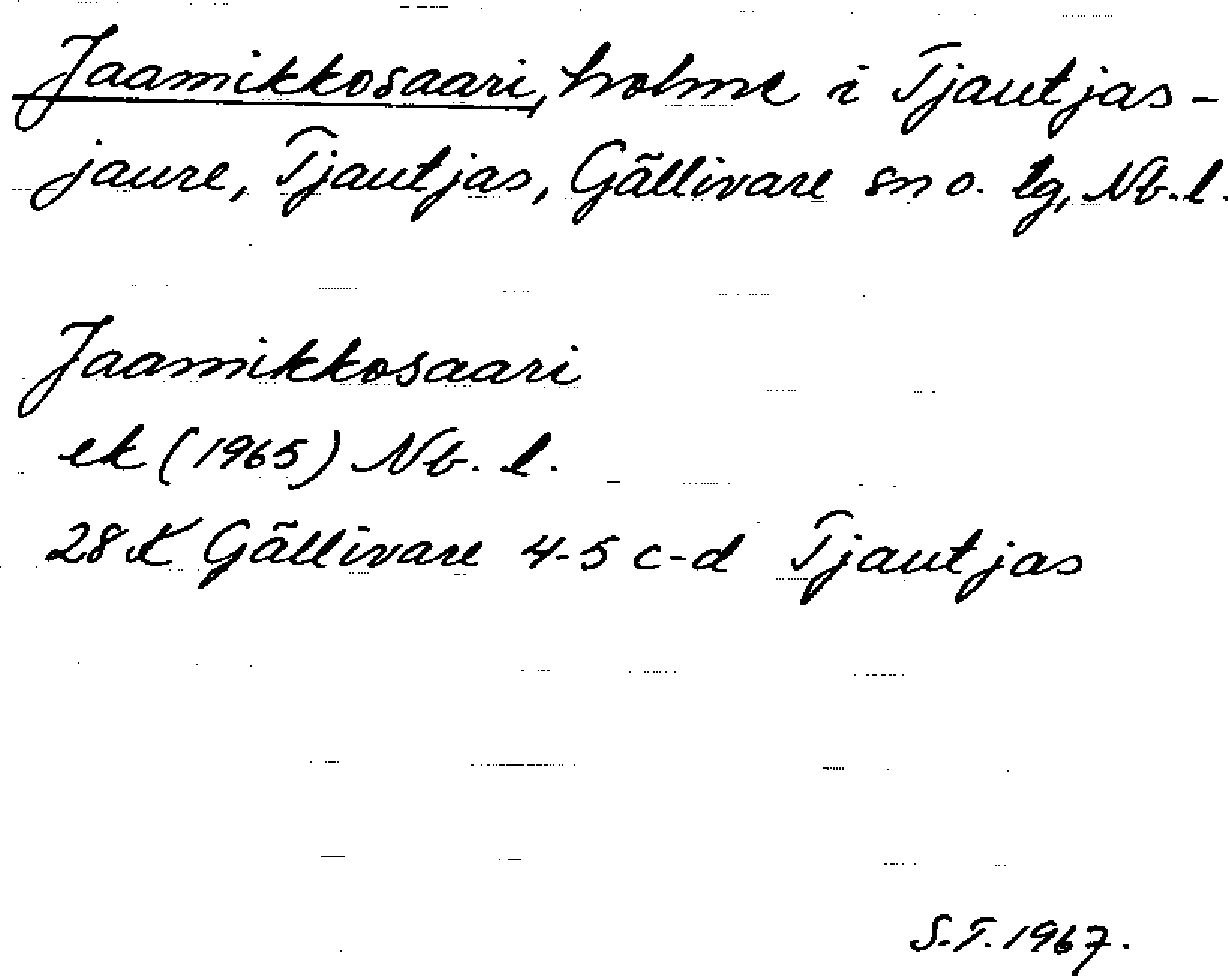 Jaamikkosaari, holme i Tjautjas-
jaure, Tjautjas, Gällivare sn o. lg, Nb. l.
Jaamikkosaari
ek (1965) Nb. l.
28 K Gällivare 4-5 c-d Tjautjas
S.T. 1967.